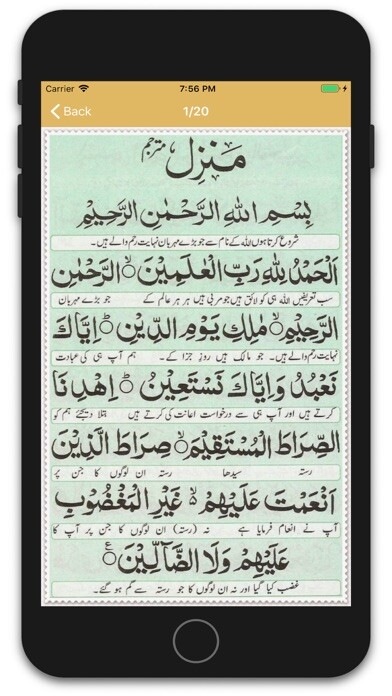 Carrier 7:56 PM
Back 1/20
مَنزِل مترجم
بِسْمِ اللهِ الرَّحْمٰنِ الرَّحِيْمِ
شروع کرتا ہوں اللہ کے نام سے جو بڑے مہربان نہایت رحم والے ہیں۔
اَلْحَمْدُ لِلّٰهِ رَبِّ الْعٰلَمِيْنَ ۙ الرَّحْمٰنِ
سب تعریفیں اللہ ہی کو لائق ہیں جو مربی ہیں ہر ہر عالم کے جو بڑے مہربان
الرَّحِيْمِ ۙ مٰلِكِ يَوْمِ الدِّيْنِ ؕ اِيَّاكَ
نہایت رحم والے ہیں۔ جو مالک ہیں روزِ جزا کے۔ ہم آپ ہی کی عبادت
نَعْبُدُ وَاِيَّاكَ نَسْتَعِيْنُ ؕ اِهْدِنَا
کرتے ہیں اور آپ ہی سے درخواست اعانت کی کرتے ہیں بتلا دیجئے ہم کو
الصِّرَاطَ الْمُسْتَقِيْمَ ۙ صِرَاطَ الَّذِيْنَ
رستہ سیدھا رستہ ان لوگوں کا جن پر
اَنْعَمْتَ عَلَيْهِمْ ۙ غَيْرِ الْمَغْضُوْبِ
آپ نے انعام فرمایا ہے نہ (رستہ) ان لوگوں کا جن پر آپ کا
عَلَيْهِمْ وَلَا الضَّآلِّيْنَ ۠
غضب کیا گیا اور نہ ان لوگوں کا جو رستہ سے گم ہو گئے۔